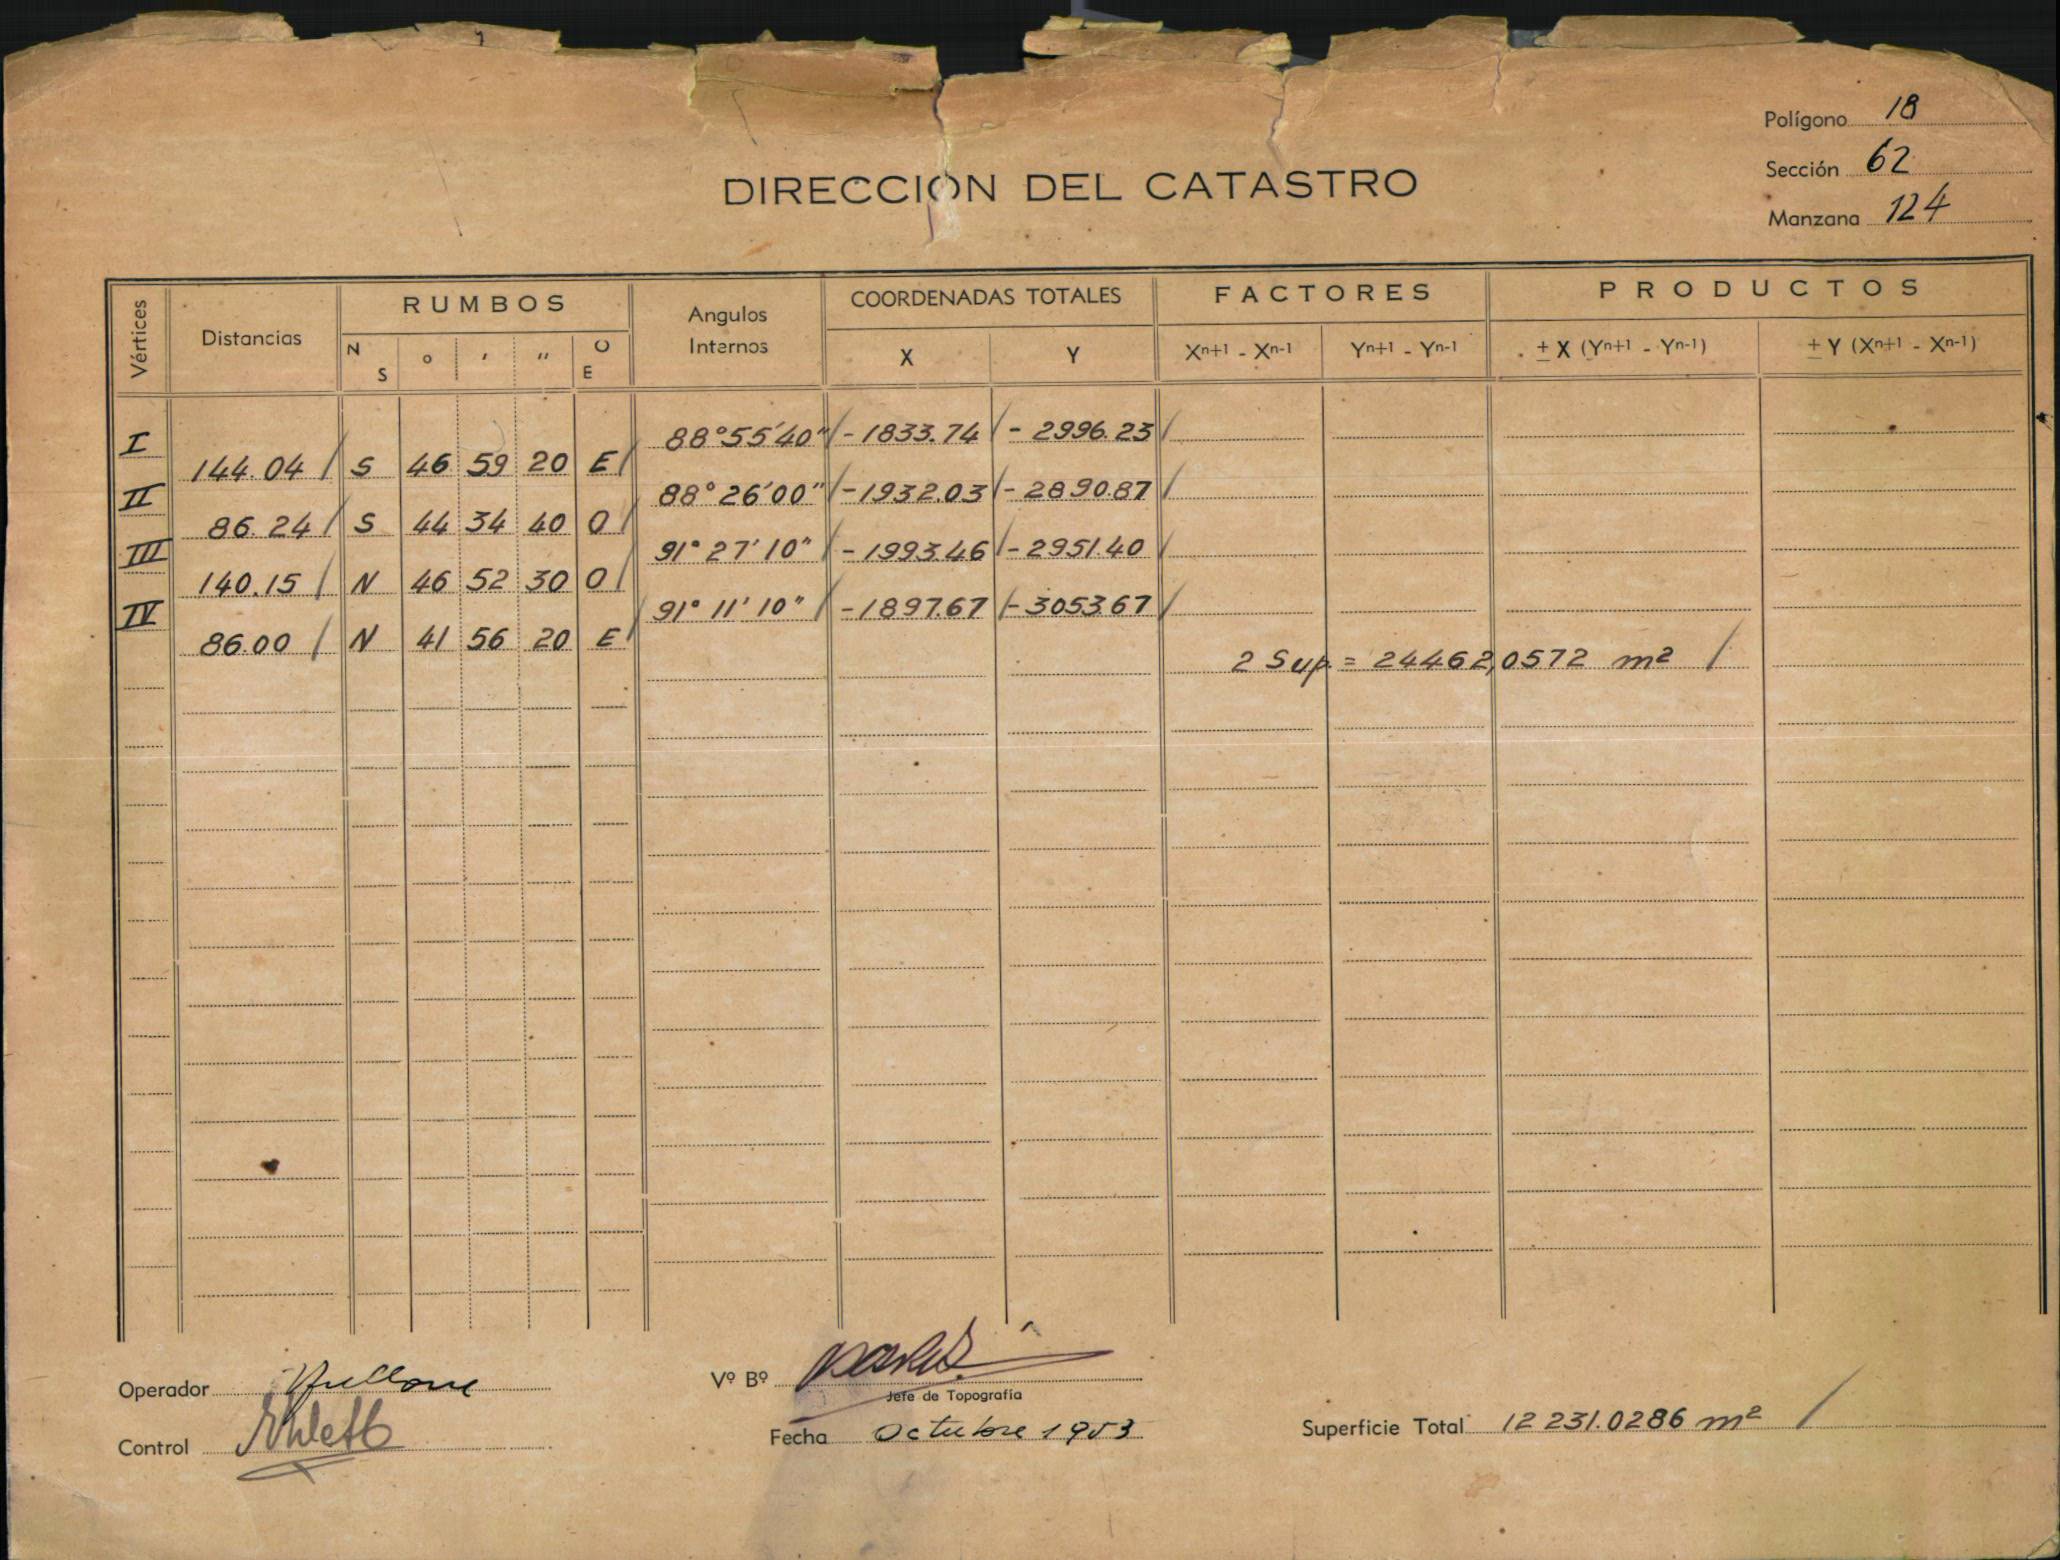 Polígono 18
Sección 62
Manzana 124
DIRECCION DEL CATASTRO
Vértices Distancias RUMBOS Angulos Internos COORDENADAS TOTALES FACTORES PRODUCTOS
N S ° ' " O E X Y Xn+1 - Xn-1 Yn+1 - Yn-1 ± X (Yn+1 - Yn-1) ± Y (Xn+1 - Xn-1)
I 88°55'40" -1833.74 - 2996.23
144.04 S 46 59 20 E
II 88°26'00" -1932.03 - 2890.87
86.24 S 44 34 40 O
III 91°27'10" -1993.46 - 2951.40
140.15 N 46 52 30 O
IV 91°11'10" -1897.67 - 3053.67
86.00 N 41 56 20 E
2 Sup. = 24462,0572 m²
Operador
Vº Bº
Jefe de Topografía
Control
Fecha Octubre 1953
Superficie Total 12 231.0286 m²